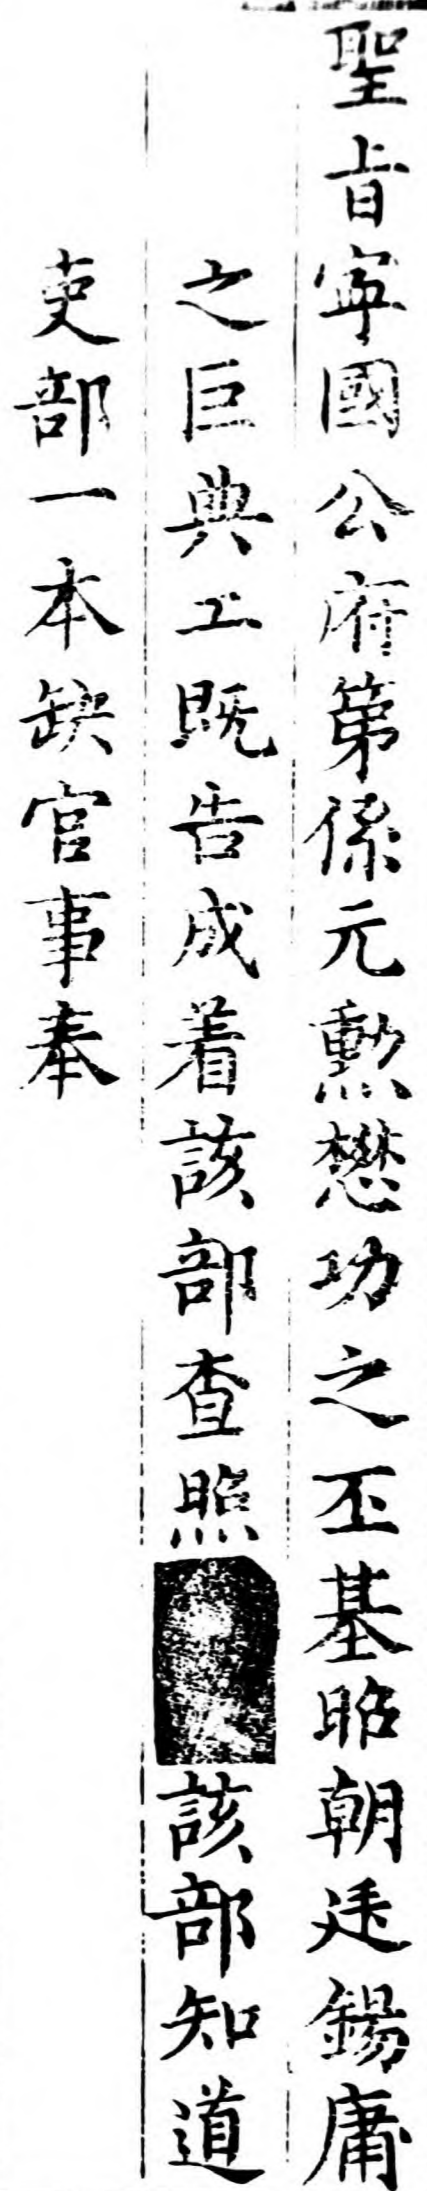 聖旨寧國公府第係元勲懋功之丕基昭朝廷錫庸
之巨典工既告成着該部查照該部知道
吏部一本缺官事奉